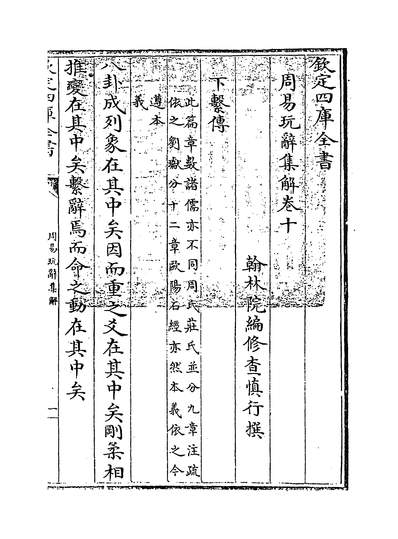 欽定四庫全書
周易玩辭集解卷十
翰林院編修查慎行撰
下繫傳
此篇章數諸儒亦不同周氏莊氏並分九章注疏
依之劉瓛分十二章歐陽石經亦然本義依之今
遵本
義
八卦成列象在其中矣因而重之爻在其中矣剛柔相
推變在其中矣繫辭焉而命之動在其中矣
欽定四庫全書
周易玩辭集解
一